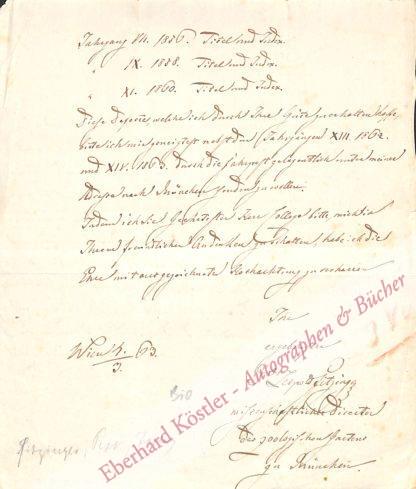 Jahrgang VII. 1856. Titel und Index.
" IX. 1858. Titel und Index.
" XI. 1860. Titel und Index.
Diese Defecte, welche ich durch Ihre Güte zu erhalten hoffe,
bitte ich mir geneigtest nebst den Jahrgängen XIII. 1862.
und XIV. 1863. durch die Fahrpost gelegentlich unter meiner
Adresse nach München senden zu wollen.
Indem ich Sie Geehrtester Herr College bitte, mich in
Ihrem freundlichen Andenken zu behalten, habe ich die
Ehre mit ausgezeichneter Hochachtung zu verharren
Ihr
ergebenster
Leopold Fitzinger
wissenschaftlicher Director
des zoologischen Gartens
zu München.
Wien 4/3. 63.
Bio
Fitzinger,
Eberhard Köstler - Autographen & Bücher